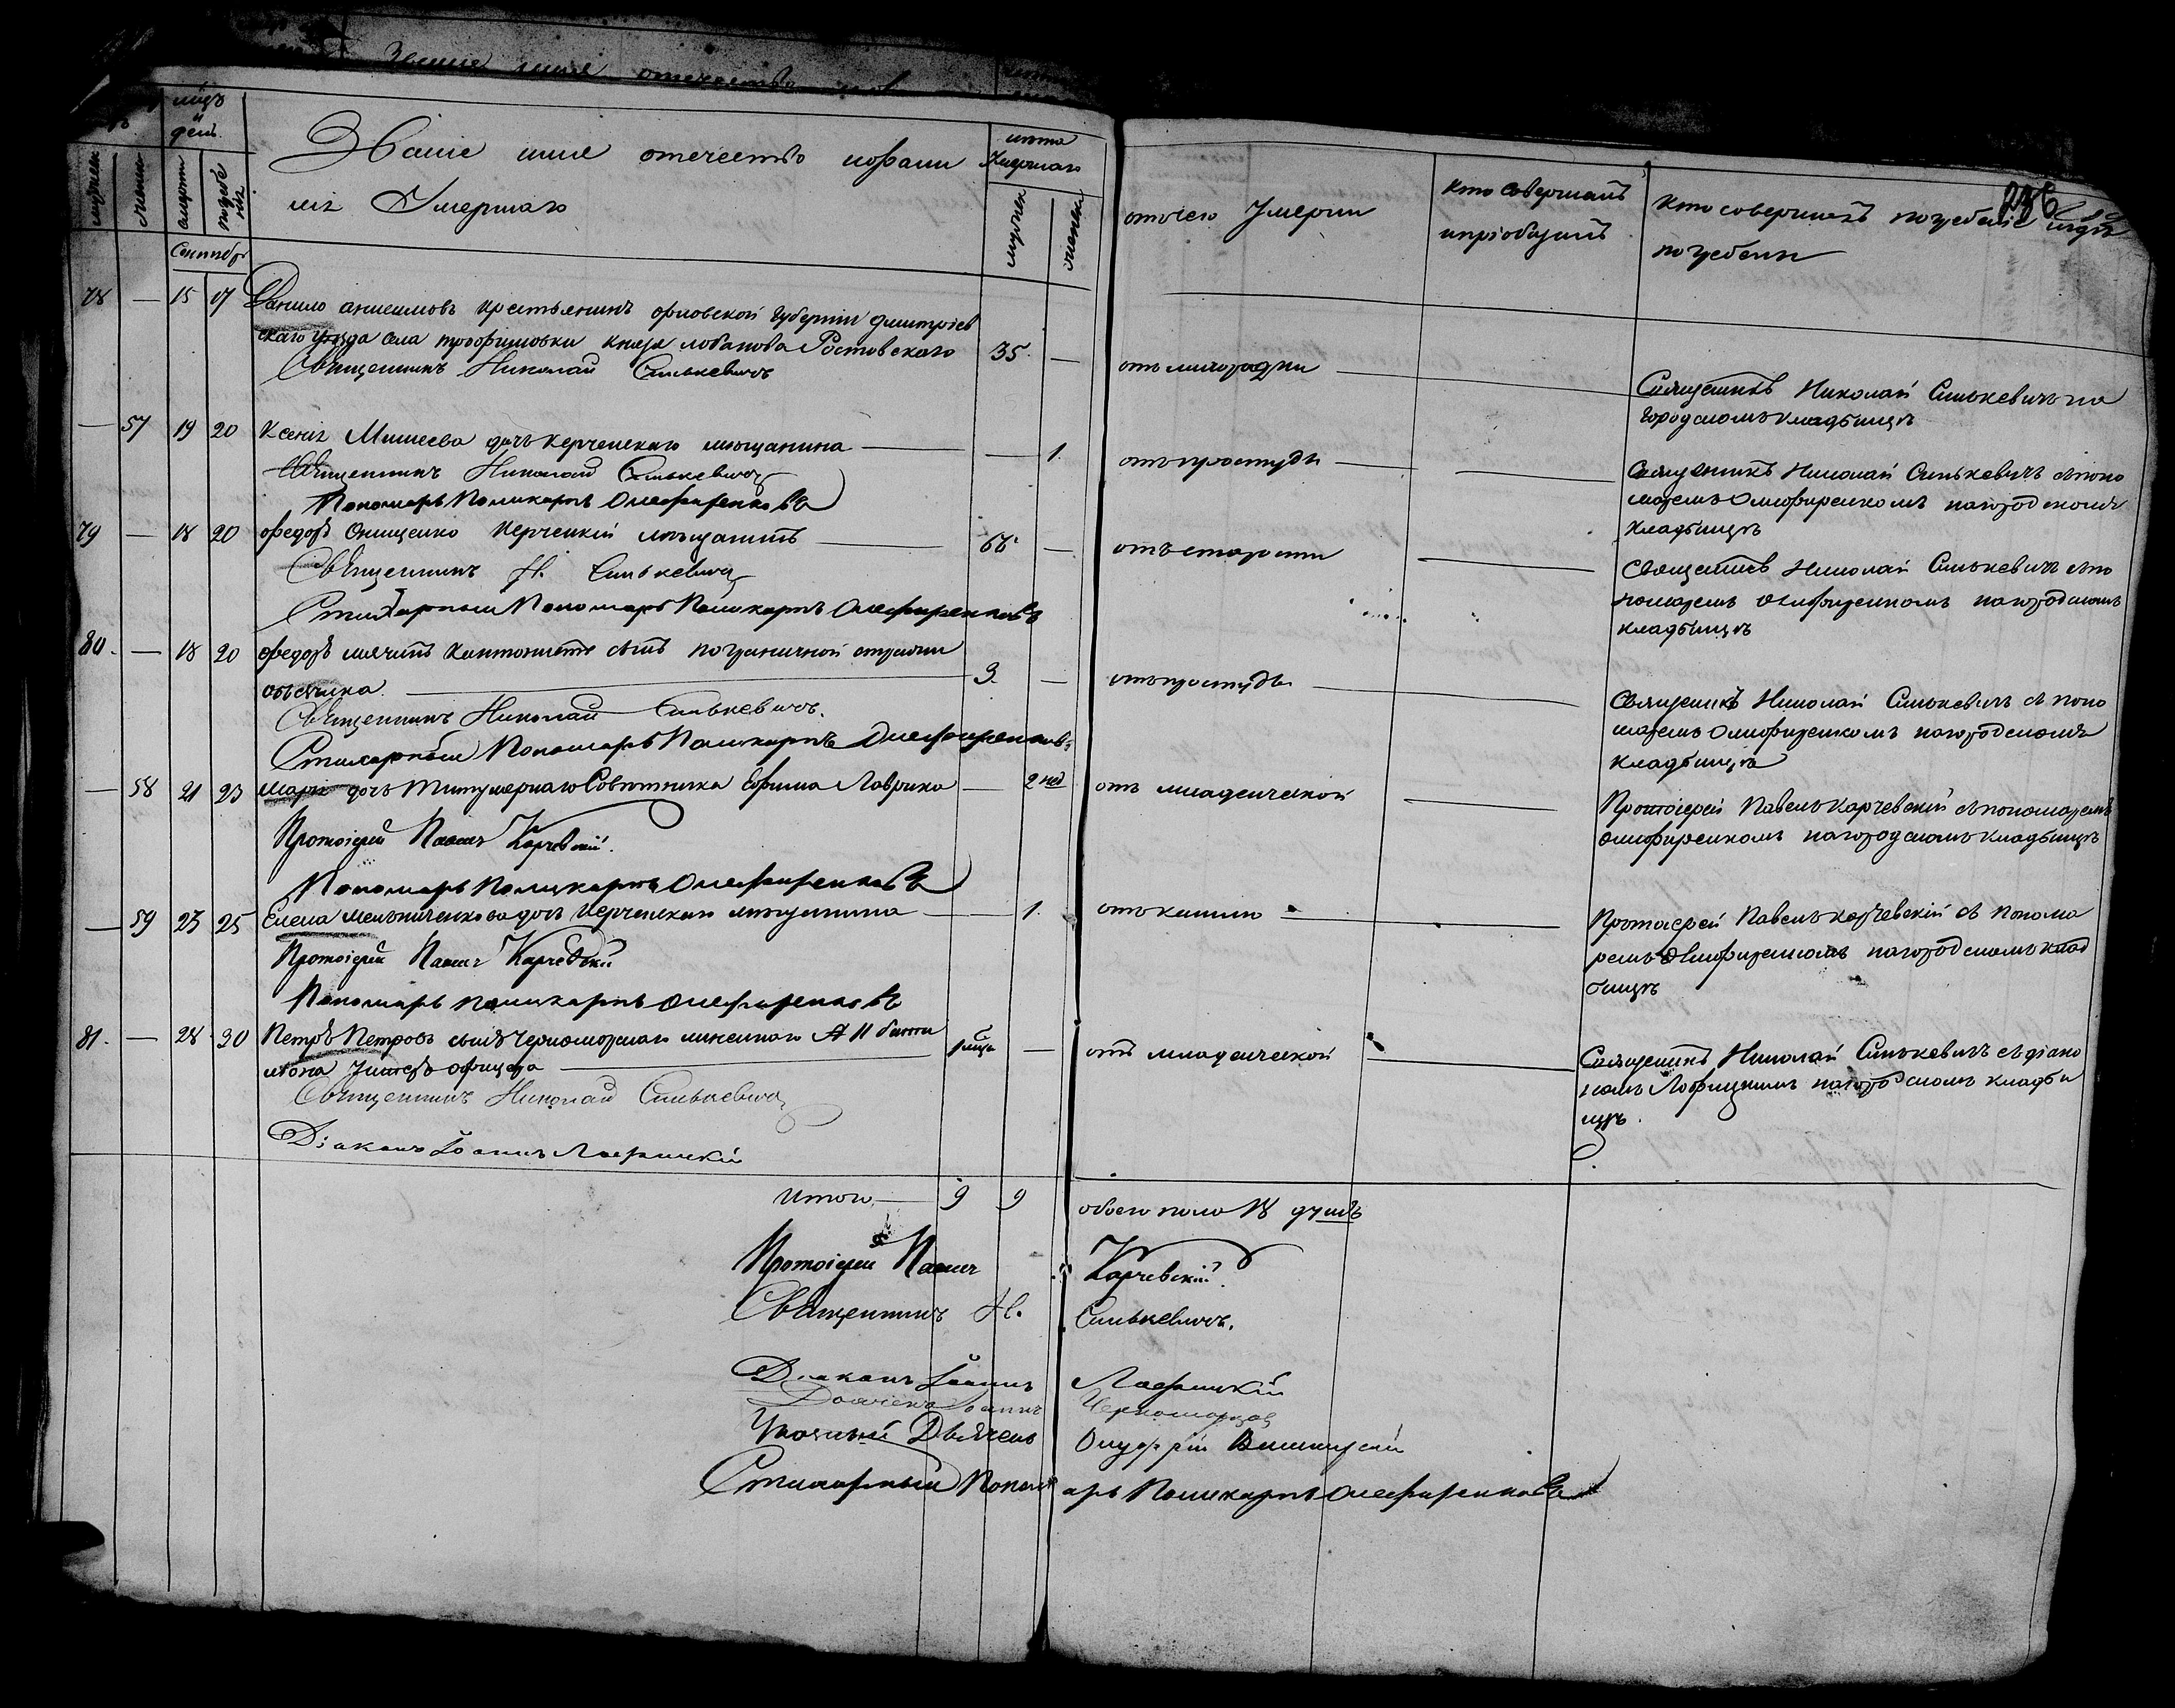 Званіе имя отечество
мцъ
и
день
Званіе имя отечество и фами
лія Умершаго
лета
Умершаго
мужеск
женско
смерти
погребе
нія
мужеск
женск
отъ чего Умерли
кто совершалъ
и пріобщалъ
кто совершалъ погребеніе и гдѣ
погребены
236
Сентябр
78 — 15 17 Данило анисимовъ Крестьянинъ орловской Губерніи дмитріев
скаго Уѣзда села трофимовки Князя лобанова Ростовскаго 35. —
Священникъ Николай Синькевичъ
отъ лихорадки
Священикъ Николай Синькевичъ на
Городскомъ Кладбищѣ
— 57 19 20 Ксенія Дочь Керченскаго мѣщанина — 1.
Священникъ Николай Синькевичъ
Пономарь Поликарпъ Олефиренковъ
отъ простуды
Священникъ Николай Синькевичъ съ поно
маремъ Олифиренкомъ на городскомъ
Кладбищѣ
79 — 18 20 федоръ Онищенко Керченскій мѣщанинъ 66 —
Священникъ Н. Синькевичъ
Стихарный Пономарь Поликарпъ Олефиренковъ
отъ старости
Священникъ Николай Синькевичъ съ по
номаремъ Олифиренкомъ на городскомъ
кладбищѣ
80. — 18 20 федоръ Кантонистъ сынъ пограничной стражи
объѣзчика 3. —
Священникъ Николай Синькевичъ.
Стихарный Пономарь Поликарпъ Олефиренковъ
отъ простуды
Священикъ Николай Синькевичъ съ поно
маремъ Олифиренкомъ на городскомъ
Кладбищѣ
— 58 21 23 Марія дочь Титулярнаго Совѣтника Ефима Лаврика — 2 нед
Протоіерей Павелъ Карчевскій.
Пономарь Поликарпъ Олефиренковъ
отъ младенческой
Протоіерей Павелъ Карчевскій съ пономаремъ
Олифиренкомъ на городскомъ кладбищѣ
— 59 23 25 Елена Мельниченкова дочь Керченскаго мѣщанина — 1.
Протоіерей Павелъ Карчевскій
Пономарь Поликарпъ Олефиренковъ
отъ кашлю
Протоіерей Павелъ Карчевскій съ понома
ремъ Олифиренкомъ на городскомъ клад
бищѣ
81. — 28 30 Петръ Петровъ сынъ Черноморскаго линейнаго № 11 бата
ліона Унтеръ офицера 1 мца —
Священникъ Николай Синькевичъ
Діаконъ Іоаннъ Лафицкій
отъ младенческой
Священикъ Николай Синькевичъ съ діако
номъ Лафицкимъ на городскомъ кладби
щѣ.
Итого — 9 9 обоего пола 18 душъ
Протоіерей Павелъ Карчевскій.
Священникъ Н. Синькевичъ.
Діаконъ Іоаннъ Лафицкій
Дьяченъ Іоаннъ Черноморцовъ
Указный Дьяченъ Онуфрій Вишницкій
Стихарный Пономарь Поликарпъ Олефиренковъ